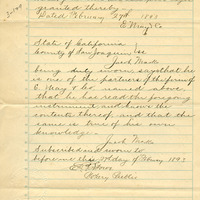 granted thereby
Dated February 27th 1893
E. May & Co
State of California
County of San Joaquin } ss
Jacob Marks
being duly sworn, says that he
is one of the partners of the firm of
E. May & Co. named above
that he has read the foregoing
instrument and knows the
contents thereof and that the
same is true of his own
knowledge.
Jacob Marks
Subscribed and sworn to
before me this day of February 1893
Notary Public